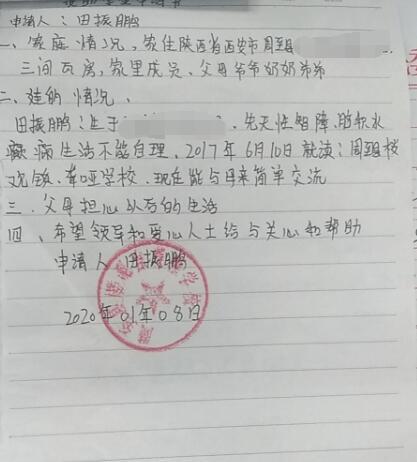 申请人：田振鹏
一、家庭情况，家住陕西省西安市周至县
三间瓦房，家里成员，父母爷爷奶奶弟弟
二、娃的情况、
田振鹏：生于 、先天性智障、脑积水
癫痫生活不能自理、2017年6月10日就读：周至县
龙镇、聋哑学校、现在能与母亲简单交流
三、父母担心以后的生活
四、希望领导和爱心人士给与关心和帮助
申请人 田振鹏
2020年01年08日